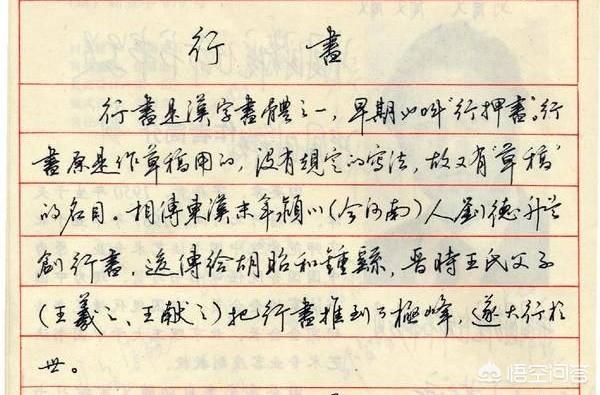 行書
行書是漢字書體之一，早期叫"行押書"。行
書原是作草稿用的，没有規定的写法，故又有"草稿"
的名目。相傳東漢末年潁川（今河南）人劉德升
創行書，傳給胡昭和鍾繇，晋時王氏父子
（王羲之、王献之）把行書推到了極峰，遂大行於
世。
悟空问答